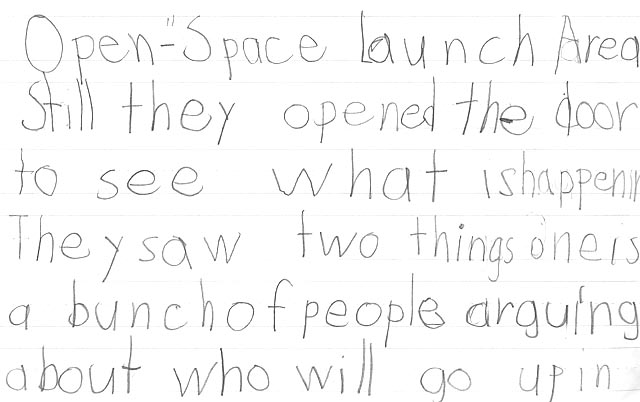 Open-"Space launch Area
Still they opened the door
to see what ishappenin
They saw two things one is
a bunch of people arguing
about who will go up in